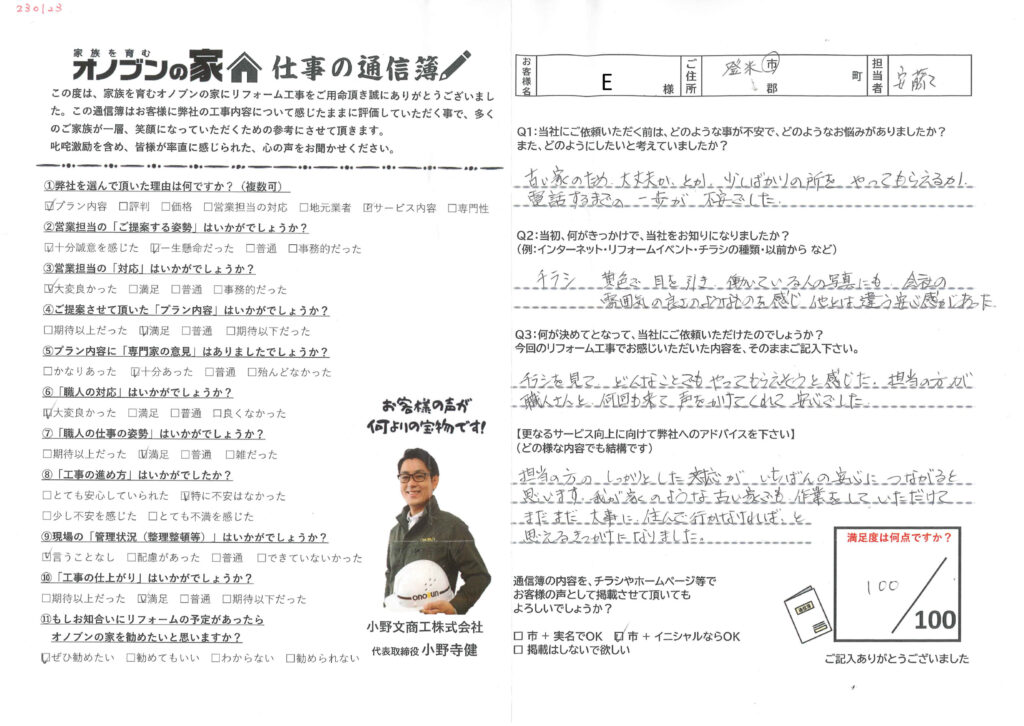 230123
家族を育む
オノブンの家 仕事の通信簿
この度は、家族を育むオノブンの家にリフォーム工事をご用命頂き誠にありがとうございまし
た。この通信簿はお客様に弊社の工事内容について感じたままに評価していただく事で、多く
のご家族が一層、笑顔になっていただくための参考にさせて頂きます。
叱咤激励を含め、皆様が率直に感じられた、心の声をお聞かせください。
①弊社を選んで頂いた理由は何ですか？（複数可）
☑プラン内容 □評判 □価格 □営業担当の対応 □地元業者 ☑サービス内容 □専門性
②営業担当の「ご提案する姿勢」はいかがでしょうか？
☑十分誠意を感じた ☑一生懸命だった □普通 □事務的だった
③営業担当の「対応」はいかがでしょうか？
☑大変良かった □満足 □普通 □事務的だった
④ご提案させて頂いた「プラン内容」はいかがでしょうか？
□期待以上だった ☑満足 □普通 □期待以下だった
⑤プラン内容に「専門家の意見」はありましたでしょうか？
□かなりあった ☑十分あった □普通 □殆んどなかった
⑥「職人の対応」はいかがでしょうか？
☑大変良かった □満足 □普通 □良くなかった
⑦「職人の仕事の姿勢」はいかがでしょうか？
□期待以上だった ☑満足 □普通 □雑だった
⑧「工事の進め方」はいかがでしたか？
□とても安心していられた ☑特に不安はなかった
□少し不安を感じた □とても不満を感じた
⑨現場の「管理状況（整理整頓等）」はいかがでしょうか？
☑言うことなし □配慮があった □普通 □できていなかった
⑩「工事の仕上がり」はいかがでしょうか？
□期待以上だった ☑満足 □普通 □期待以下だった
⑪もしお知合いにリフォームの予定があったら
オノブンの家を勧めたいと思いますか？
☑ぜひ勧めたい □勧めてもいい □わからない □勧められない
お客様の声が
何よりの宝物です!
onobun
小野文商工株式会社
代表取締役 小野寺健
お客様名 E 様 ご住所 登米 市 郡 町 担当者 安藤
Q1：当社にご依頼いただく前は、どのような事が不安で、どのようなお悩みがありましたか？
また、どのようにしたいと考えていましたか？
古い家のため 大丈夫か、とか、少しばかりの所を やってもらえるか、
電話するまでの 一歩が 不安でした。
Q2：当初、何がきっかけで、当社をお知りになりましたか？
（例：インターネット・リフォームイベント・チラシの種類・以前から など）
チラシ 黄色で 目を引き 働いている人の写真にも 会社の
雰囲気の良さのようなものを感じ 他とは違う安心感があった
Q3：何が決めてとなって、当社にご依頼いただけたのでしょうか？
今回のリフォーム工事でお感じいただいた内容を、そのままご記入下さい。
チラシを見て、どんなことでもやってもらえそうと感じた。担当の方が
職人さんと 何回も来て 声をかけてくれて 安心でした。
【更なるサービス向上に向けて弊社へのアドバイスを下さい】
（どの様な内容でも結構です）
担当の方の しっかりとした 対応が いちばんの安心に つながると
思います。我が家のような古い家でも 作業をしていただけて
まだまだ 大事に 住んで行かなければ、と
思えるきっかけになりました。
満足度は何点ですか？
100
100
通信簿の内容を、チラシやホームページ等で
お客様の声として掲載させて頂いても
よろしいでしょうか？
□ 市 + 実名でOK ☑ 市 + イニシャルならOK
□ 掲載はしないで欲しい
ご記入ありがとうございました